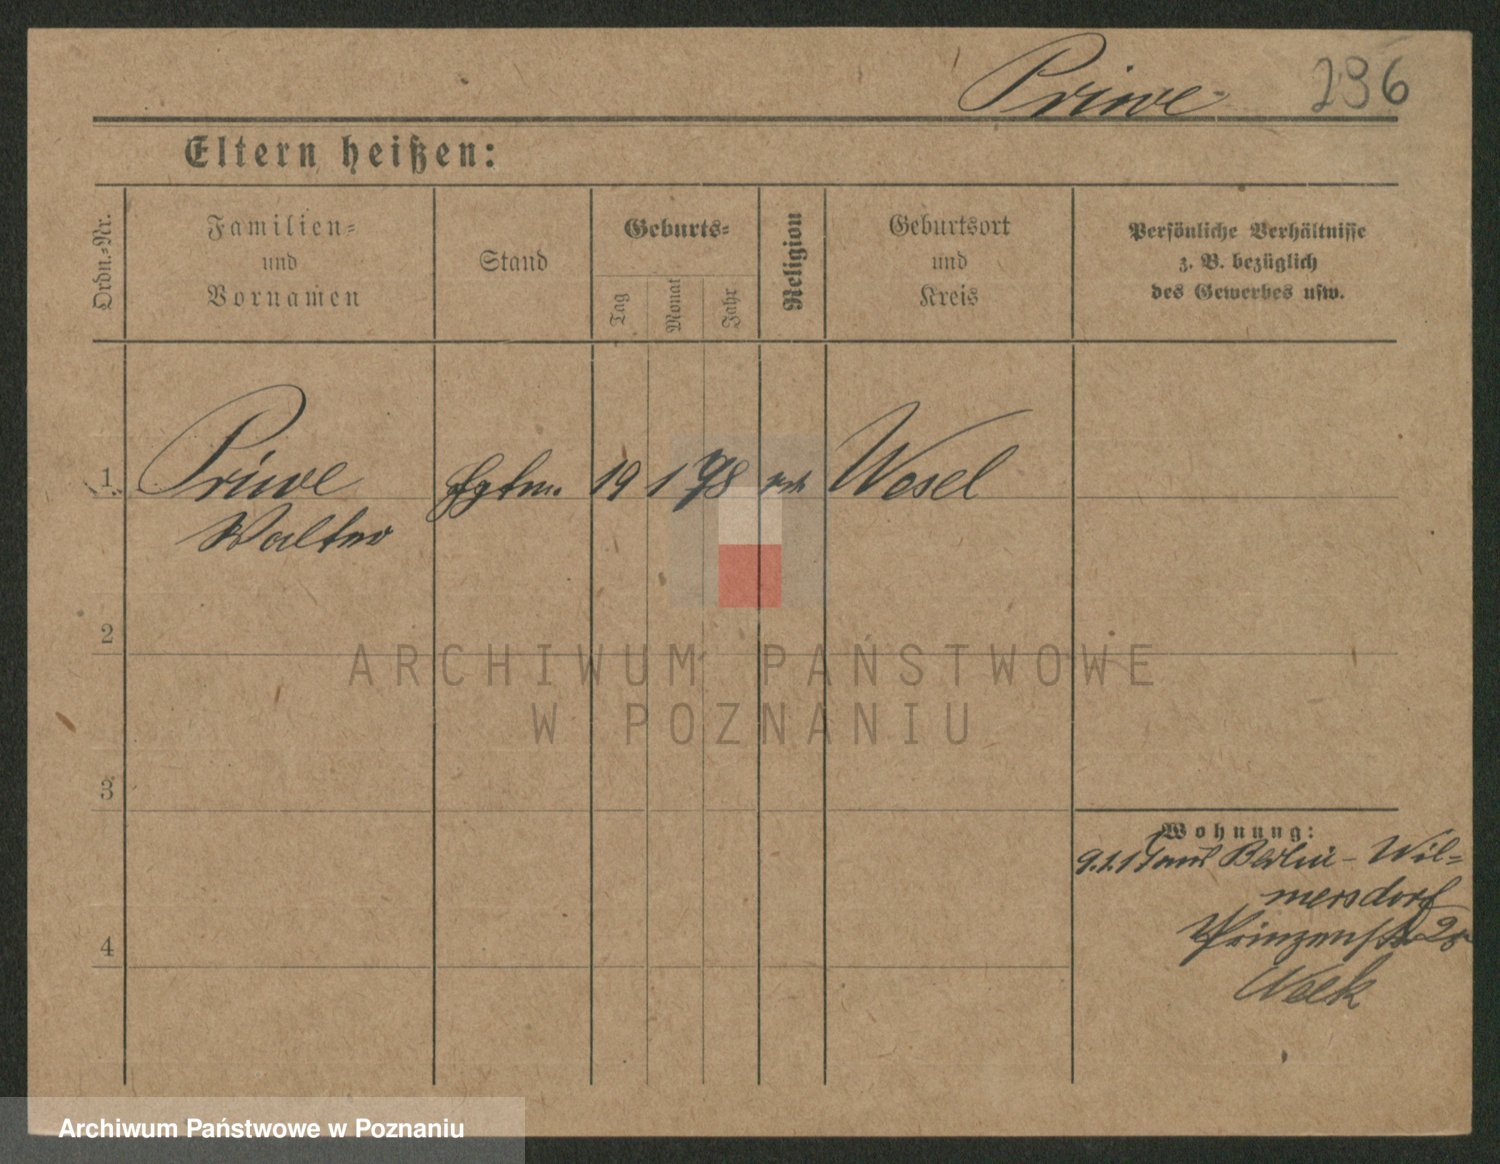 Priwe
296
Eltern heißen:
Ordn.-Nr.
Familien-
und
Vornamen
Stand
Geburts-
Tag
Monat
Jahr
Religion
Geburtsort
und
Kreis
Persönliche Verhältnisse
z. B. bezüglich
des Gewerbes usw.
1
Priwe
19
1
78
Wesel
Walter
2
ARCHIWUM PAŃSTWOWE
W POZNANIU
3
Wohnung:
9.1.1 Berlin- Wil-
mersdorf
Prinzenstr
4
Archiwum Państwowe w Poznaniu